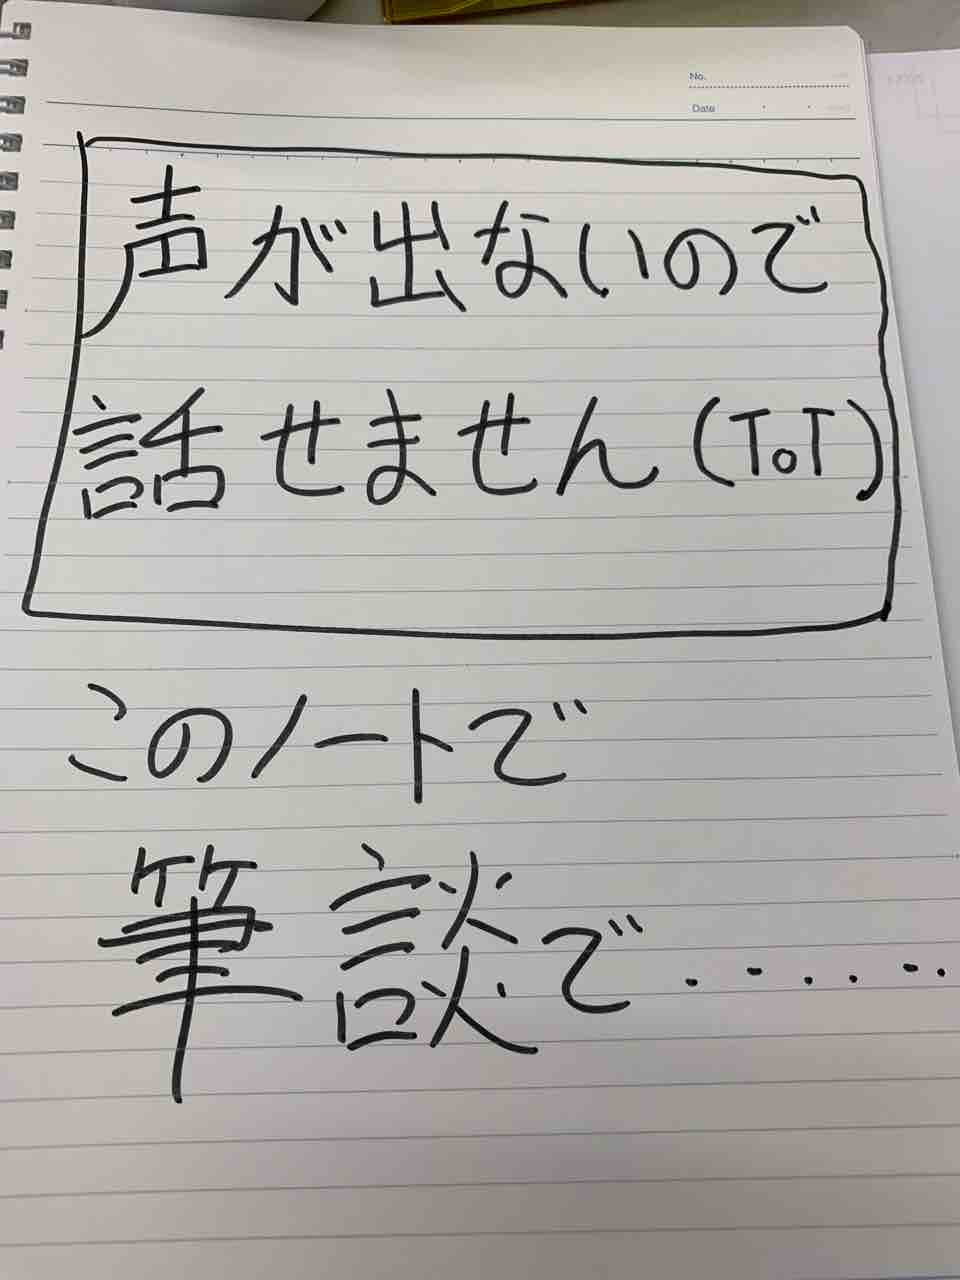 No.
Date
声が出ないので
話せません(ToT)
このノートで
筆談で・・・・・・